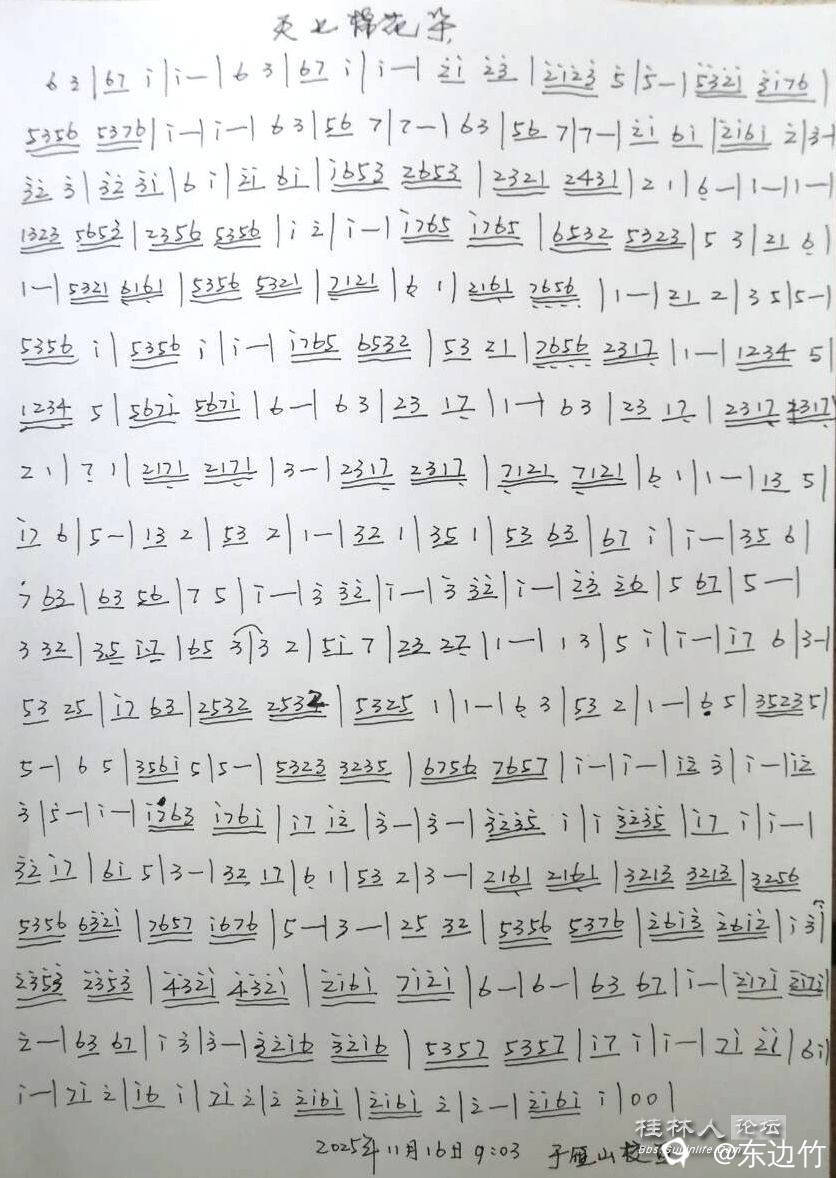 天上棉花朵
6 3 | 67 i | i — | 6 3 | 67 i | i — | 2̇i 2̇3̇ | 2̇i2̇3̇ 5̇ | 5̇ — | 5̇3̇2̇i 3̇i76 |
5356 5376 | i — | i — | 6 3 | 56 7 | 7 — | 6 3 | 56 7 | 7 — | 2̇i 6i | 2̇i6i 2̇ | 3 —
3̇2̇ 3̇ | 3̇2̇ 3̇i | 6 i | 2̇i 6i | i653 2653 | 2321 2431 | 2 1 | 6̣ — | 1 — | 1 —
1323 5653 | 2356 5356 | i 2̇ | i — | i765 i765 | 6532 5323 | 5 3 | 21 6̣ |
1 — | 5321 6̣16̣1 | 5356 5321 | 7̣121 | 6̣ 1 | 216̣1 7̣6̣5̣6̣ | 1 — | 21 2 | 3 5 | 5 — |
5356 i | 5356 i | i — | i765 6532 | 53 21 | 7̣6̣5̣6̣ 2317̣ | 1 — | 1234 5 |
1234 5 | 567i 567i | 6 — | 6 3 | 23 17̣ | 1 — | 6 3 | 23 17̣ | 2317̣ 2317̣
2 1 | 7̣ 1 | 217̣1 217̣1 | 3 — | 2317̣ 2317̣ | 7̣121 7̣121 | 6̣ 1 | 1 — | 13 5 |
i7 6 | 5 — | 13 2 | 53 2 | 1 — | 32 1 | 35 1 | 53 63 | 67 i | i — | 35 6 |
7 63 | 63 56 | 7 5 | i — | 3̇ 3̇2̇ | i — | 3̇ 3̇2̇ | i — | 2̇3̇ 2̇6 | 5 67 | 5 — |
3 32 | 35 i7 | 65 3 | 3 2 | 5i 7 | 23 27̣ | 1 — | 1 3 | 5 i | i — | i7 6 | 3 —
53 25 | i7 63 | 2532 2532 | 5325 1 | 1 — | 6̣ 3 | 53 2 | 1 — | 6̣ 5 | 3523 5 |
5 — | 6 5 | 356i 5 | 5 — | 5323 3235 | 6756 7657 | i — | i — | i2̇ 3̇ | i — | i2̇
3̇ | 5̇ — | i — | i763 i76i | i7 i2̇ | 3̇ — | 3̇ — | 3̇2̇3̇5̇ i | i 3̇2̇3̇5̇ | i7 i | i — |
3̇2̇ i7 | 6i 5 | 3 — | 32 17 | 6̣ 1 | 53 2 | 3 — | 216̣1 216̣1 | 3213 3213 | 3256
5356 632i | 7657 i676 | 5 — | 3 — | 25 32 | 5356 5376 | 2̇6i3̇ 2̇6i2̇ | i 3̇ |
2̇3̇5̇3̇ 2̇3̇5̇3̇ | 4̇3̇2̇i 4̇3̇2̇i | 2̇i6i 7i2̇i | 6 — | 6 — | 63 67 | i — | 2̇i7i 2̇i7i |
2̇ — | 63 67 | i 3̇ | 3̇ — | 3̇2̇i6 3̇2̇i6 | 5357 5357 | i7 i | i — | 7i 2̇i | 6i |
i — | 7i 2̇ | i6 i | 7i 2̇ | 2̇ 2̇i6i | 2̇i6i 2̇ | 2̇ — | 2̇i6i i | 0 0 |
2025年11月16日9:03 于雁山校
桂林人论坛
Bbs.Guilinlife.com
@东边竹